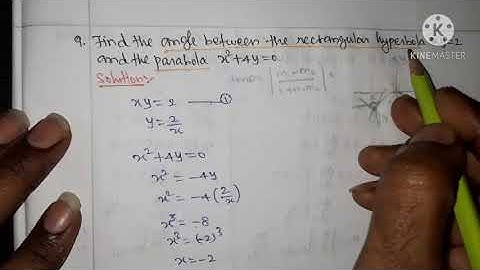 9. Find the angle between the rectangular hyperbola =2
and the parabola x²+4y=0
Solution:-
xy=2 —①
y=2/x
x²+4y=0
x²=-4y
x²=-4(2/x)
x³=-8
x³=(-2)³
x=-2
KINEMASTER